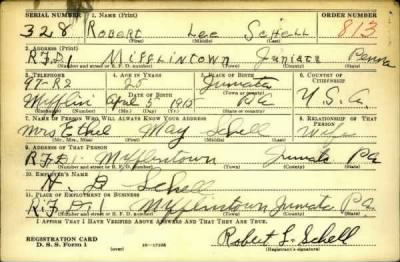 SERIAL NUMBER 1. NAME (Print) ORDER NUMBER
328 ROBERT Lee Schell 813
(First) (Middle) (Last)
2. ADDRESS (Print)
R.F.D.1 Mifflintown Juniata Penna
(Number and street or R. F. D. number) (Town) (County) (State)
3. TELEPHONE 4. AGE IN YEARS 5. PLACE OF BIRTH 6. COUNTRY OF CITIZENSHIP
97-R2 25 Juniata
DATE OF BIRTH
Mifflin April 5 1915 Pa U.S.A.
(Exchange) (Number) (Mo.) (Day) (Yr.) (State or country)
7. NAME OF PERSON WHO WILL ALWAYS KNOW YOUR ADDRESS 8. RELATIONSHIP OF THAT PERSON
Mrs Ethel May Schell Wife
(Mr., Mrs., Miss) (First) (Middle) (Last)
9. ADDRESS OF THAT PERSON
R.F.D.1. Mifflintown Juniata Pa
(Number and street or R. F. D. number) (Town) (County) (State)
10. EMPLOYER'S NAME
Schell
11. PLACE OF EMPLOYMENT OR BUSINESS
R.F.D.1 Mifflintown Juniata Pa
(Number and street or R. F. D. number) (Town) (County) (State)
I AFFIRM THAT I HAVE VERIFIED ABOVE ANSWERS AND THAT THEY ARE TRUE.
REGISTRATION CARD
D. S. S. Form 1 (over) 16-17105
Robert L. Schell
(Registrant's signature)